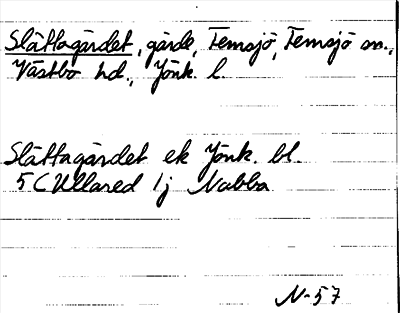 Slättagärdet, gärde, Femsjö, Femsjö sn.,
Västbo hd., Jönk. l.
Slättagärdet ek Jönk. bl.
5C Ullared 1j Nabba
N-57